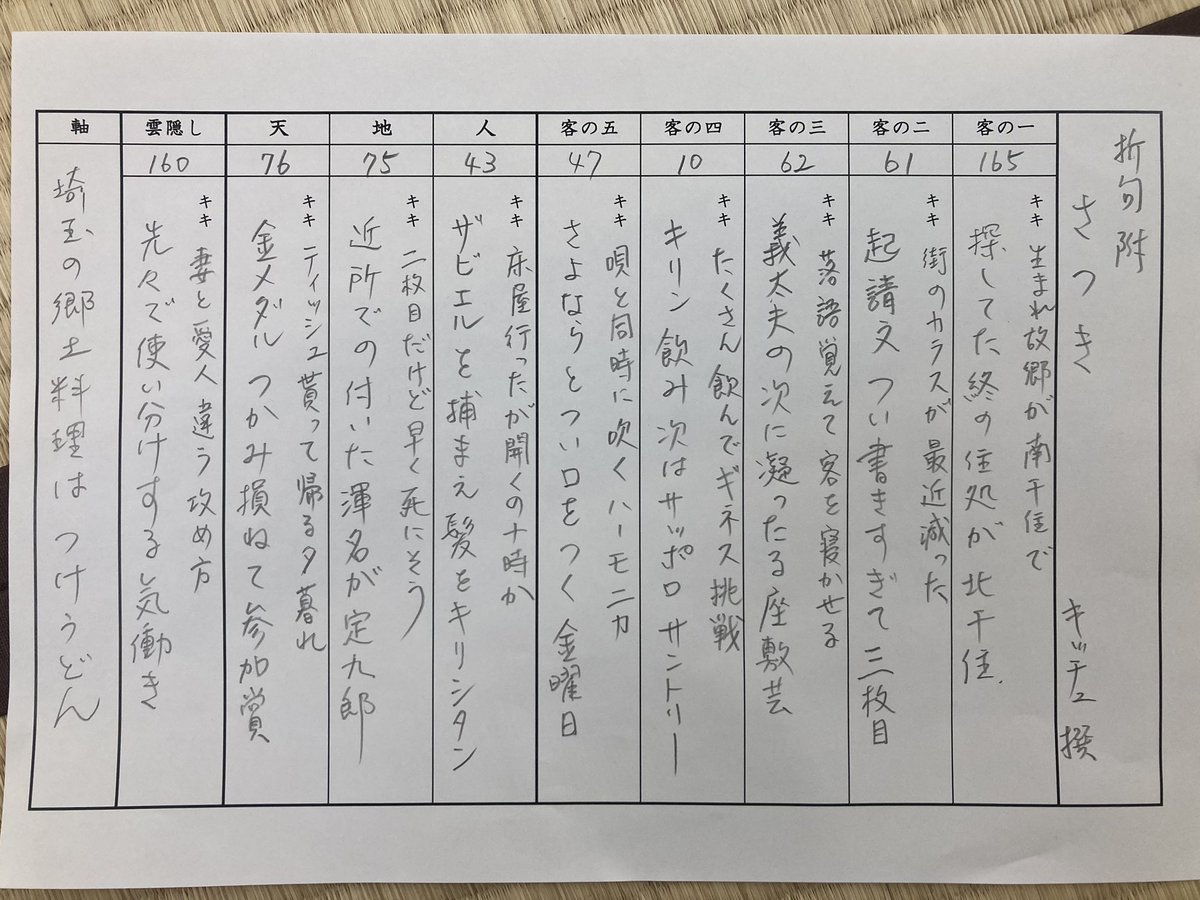 折句附
さつき
キッチュ撰
客の一
165
キキ 生まれ故郷が南千住で
探してた終の住処が北千住.
客の二
61
キキ 街のカラスが最近減った
起請文つい書きすぎて三枚目
客の三
62
キキ 落語覚えて客を寝かせる
義太夫の次に凝ったる座敷芸
客の四
10
キキ たくさん飲んでギネス挑戦
キリン飲み次はサッポロサントリー
客の五
47
キキ 唄と同時に吹くハーモニカ
さよならとつい口をつく金曜日
人
43
キキ 床屋行ったが開くの十時か
ザビエルを捕まえ髪をキリシタン
地
75
キキ 二枚目だけど早く死にそう
近所での付いた渾名が定九郎
天
76
キキ ティッシュ貰って帰る夕暮れ
金メダルつかみ損ねて参加賞
雲隠し
160
キキ 妻と愛人違う攻め方
先々で使い分けする気働き
軸
埼玉の郷土料理はつけうどん